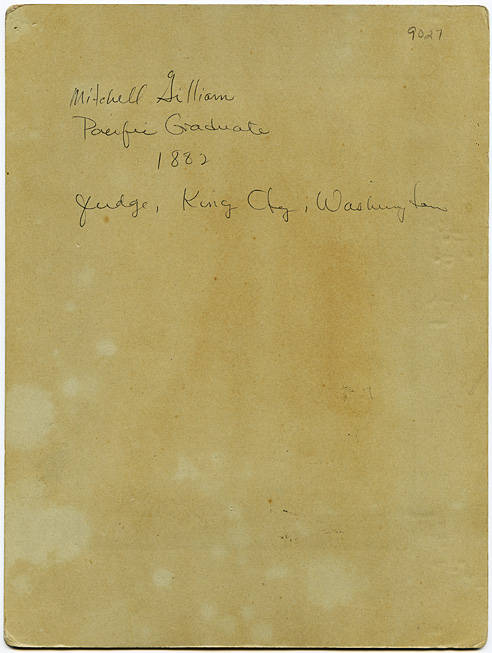 9027
Mitchell Gilliam
Pacific Graduate
1882
Judge, King Cty, Washington